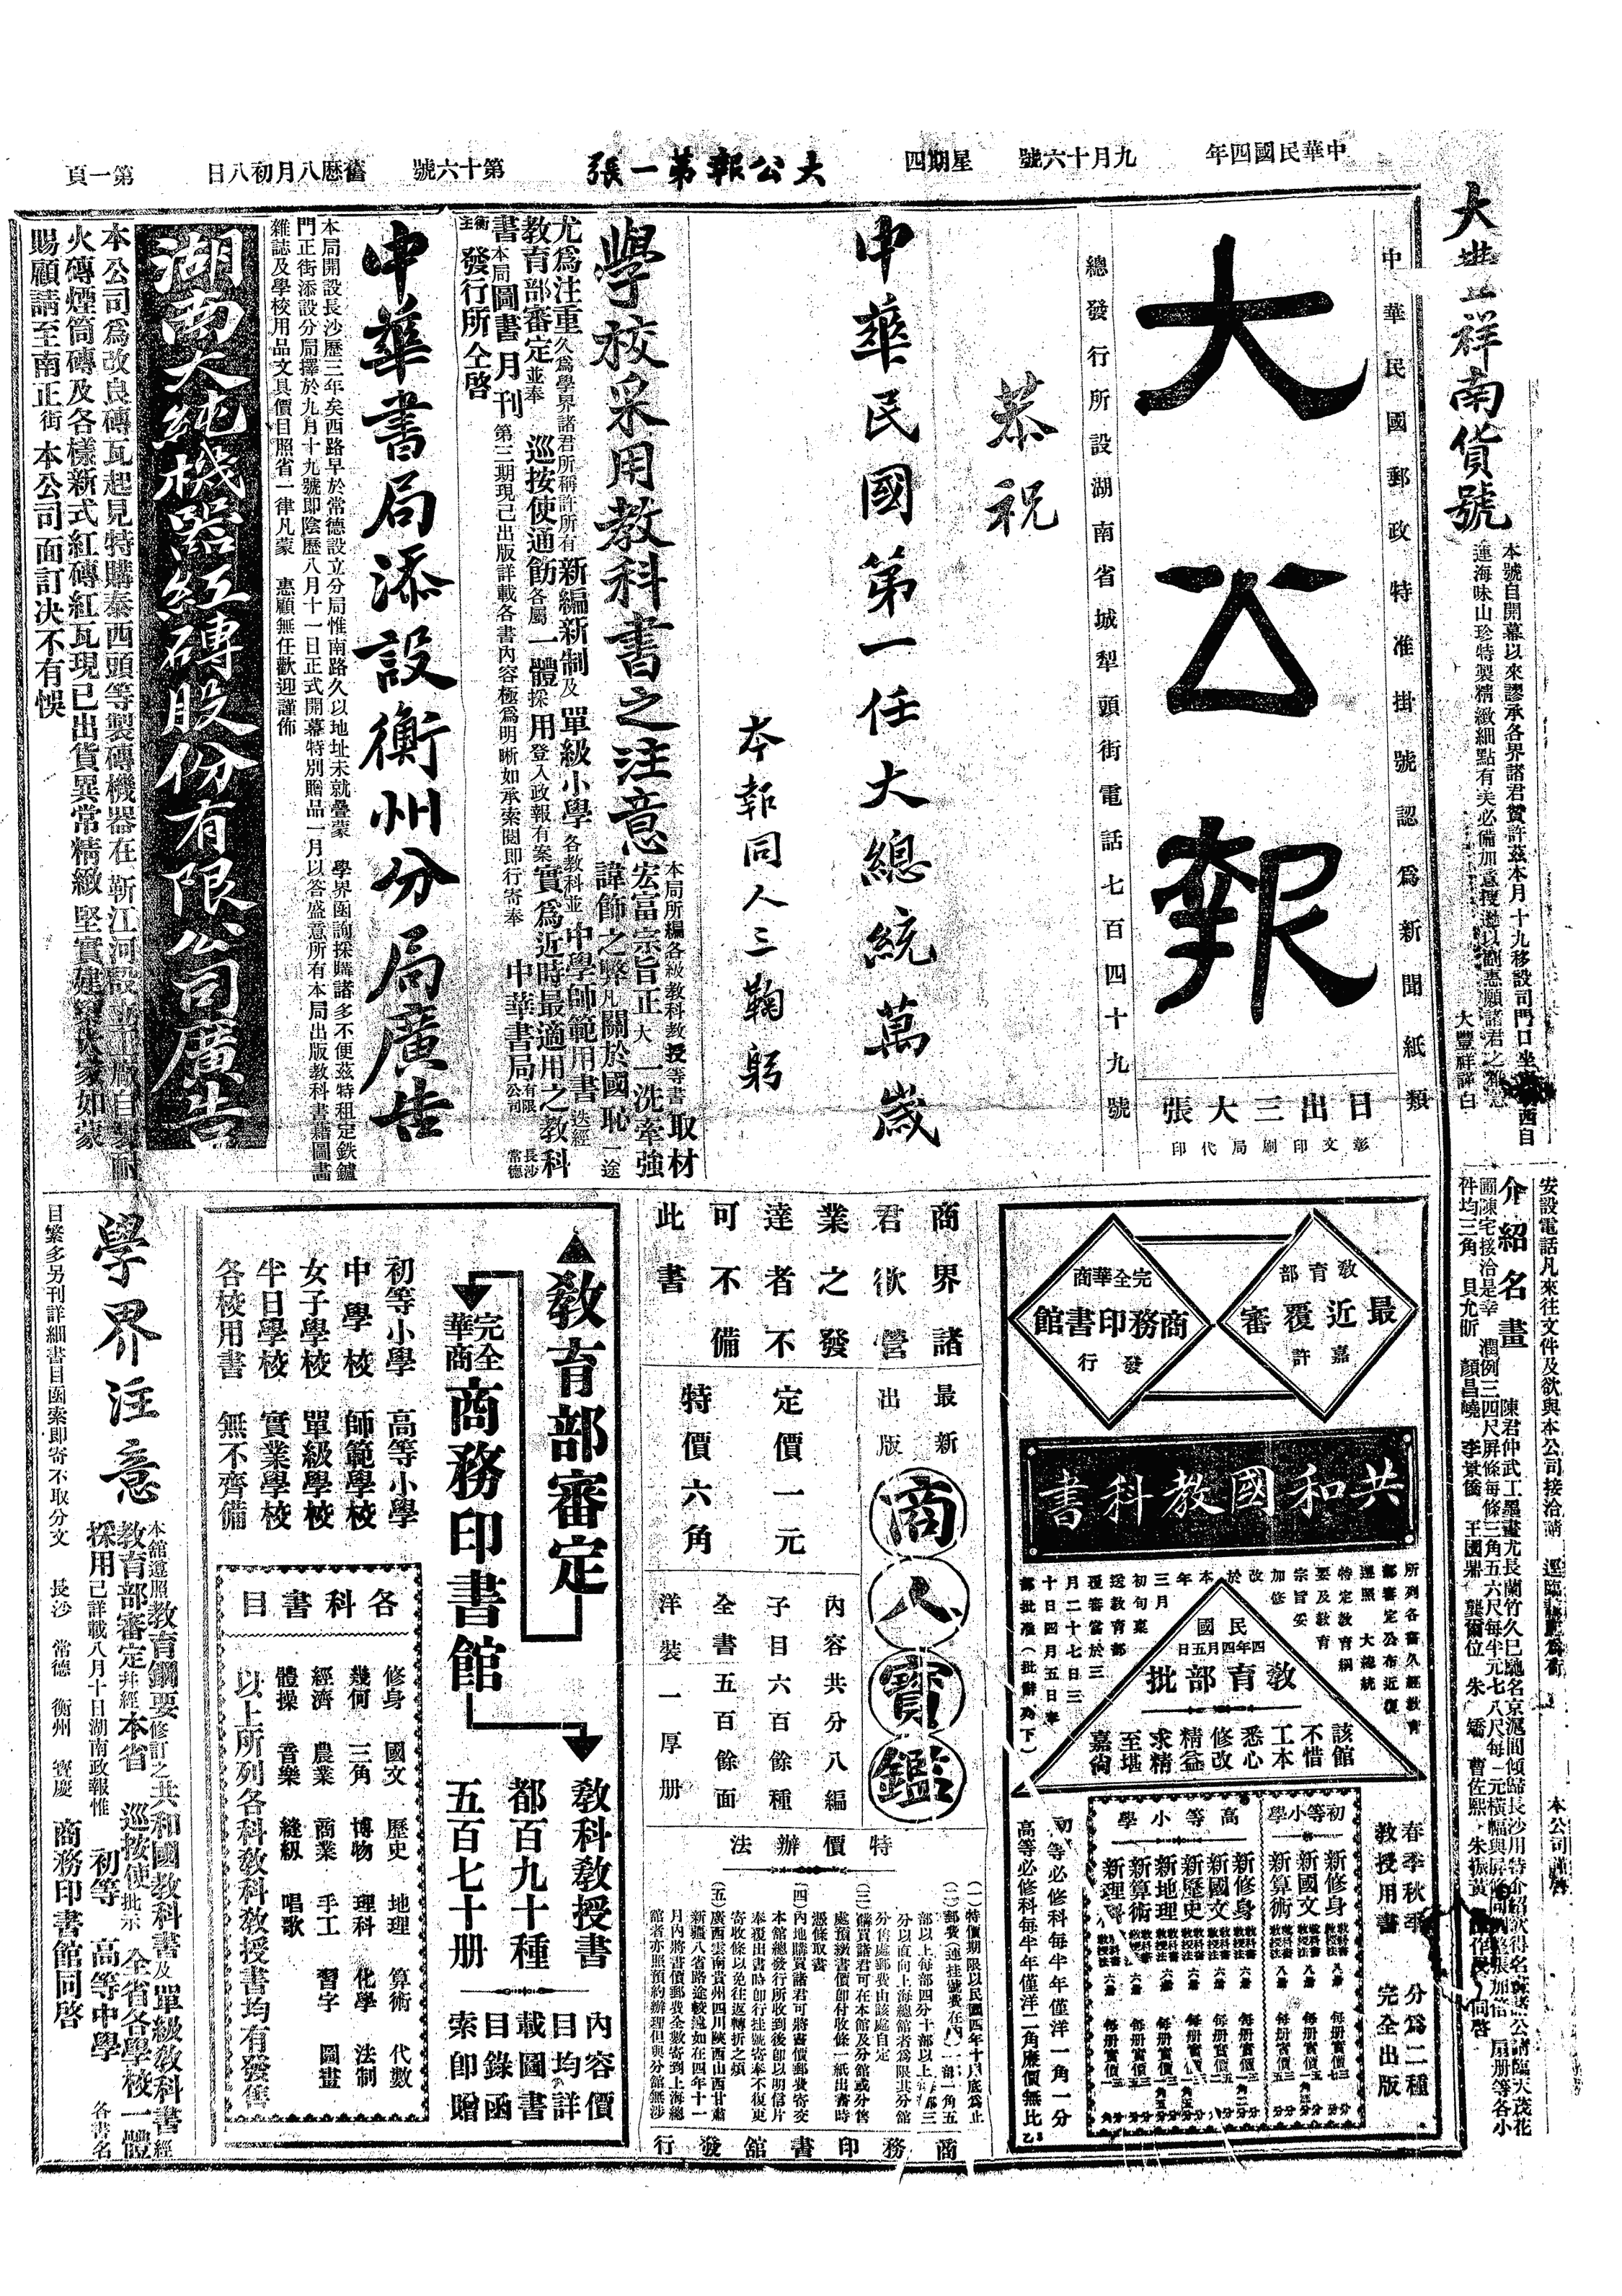 中華民國四年
九月十六號
星期四
大公報第一張
第十六號
舊歷八月初八日
第一頁
祥南貨號
本號自開幕以來謬承各界諸君贊許茲本月十九移設司門口坐
西自
運海味山珍特製精緻細點有美必備加意
大豐祥謹白
安設電話凡來往文件及欲與本公司接洽請
本公司謹啓
介紹名畫
陳君仲武工墨畫尤長蘭竹久已馳名京滬間傾歸長沙
圃陳宅接洽是幸
潤例三四尺屏條每條三角五六尺每半元七八尺每一元橫幅與屏條同
扇册等各小
件均三角
貝允昕
顏昌嶢
李景僑
王國鼎
龔爾位
朱矯
曹佐熙
朱振黃
同啓
中華民國郵政特准掛號認為新聞紙類
大公報
日出三大張
彰文印刷局代印
總發行所設湖南省城犁頭街電話七百四十九號
恭祝
中華民國第一任大總統萬歲
本報同人三鞠躬
學校采用教科書之注意
本局所編各級教科教授等書取材
宏富宗旨正大一洗牽強
諱飾之弊凡關於國恥一途
尤為注重久為學界諸君所稱許所有新編新制及單級小學各教科並中學師範用書迭經
教育部審定並奉
巡按使通飭各屬一體採用登入政報有案實為近時最適用之教科
書本局圖書月刊第三期現已出版詳載各書內容極為明晰如承索閱即行寄奉
中華書局有限公司
長沙
常德
衡
發行所仝啓
中華書局添設衡州分局廣告
本局開設長沙歷三年矣西路早於常德設立分局惟南路久以地址未就疊蒙
學界函詢採購諸多不便茲特租定鉄鑪
門正街添設分局擇於九月十九號即陰歷八月十一日正式開幕特別贈品一月以答盛意所有本局出版教科書籍圖畫
雜誌及學校用品文具價目照省一律凡蒙
惠顧無任歡迎謹佈
湖南大純機器紅磚股份有限公司廣告
本公司為改良磚瓦起見特購泰西頭等製磚機器在靳江河設立廠自
火磚煙筒磚及各樣新式紅磚紅瓦現已出貨異常精緻堅實建
如蒙
賜顧請至南正街本公司面訂決不有悞
教育部
最近覆審
嘉許
完全華商
商務印書館
發行
共和國教科書
所列各書久經教育
部審定公布近復
遵照大總統
特定教育綱
要及教育
宗旨妥
加修
改於本年
三月
初旬稟
送教育部
覆審當於三
月二十七日三
十日四月五日奉
部批准(批辭如下)
民國
四年四月五日
教育部批
該館
不惜
工本
悉心
修改
精益
求精
至堪
嘉尙
春季秋季
教授用書
分為二種
完全出版
初等小學
新修身
新國文
新算術
高等小學
新修身
新國文
新歷史
新地理
新算術
新理科
初等必修科每半年僅洋一角一分
高等必修科每半年僅洋二角廉價無比
商界諸
君欲營
業之發
達者不
可不備
此書
最新
出版
商人寶鑑
定價一元
特價六角
內容共分八編
子目六百餘種
全書五百餘面
洋裝一厚册
特價辦法
(一)特價期限以民國四年十月底為止
(二)郵費(連挂號費在內)一部一角五
部以上每部四分十部以上每部三
分以直向上海總館者為限其分館
分售處郵費由該處自定
(三)購買諸君可在本館及分館或分售
處預繳書價即付收條一紙出書時
憑條取書
(四)內地購買諸君可將書價郵費寄交
本館總發行所收到後即以明信片
奉覆出書時即行挂號寄奉不復更
寄收條以免往返轉折之煩
(五)廣西雲南貴州四川陝西山西甘肅
新疆八省路途較遠如在四年十一
月內將書價郵費全數寄到上海總
館者亦照預約辦理但與分館無涉
商務印書館發行
教育部審定
完全華商
商務印書館
教科教授書
都百九十種
五百七十册
內容價
目均詳
載圖書
目錄函
索即贈
初等小學
高等小學
中學校
師範學校
女子學校
單級學校
半日學校
實業學校
各校用書
無不齊備
各科書目
修身
國文
歷史
地理
算術
代數
幾何
三角
博物
理科
化學
法制
經濟
農業
商業
手工
習字
圖畫
體操
音樂
縫紉
唱歌
以上所列各科教科教授書均有發售
學界注意
本館遵照教育綱要修訂之共和國教科書及單級教科書經
教育部審定并經本省
巡按使批示
全省各學校一體
採用已詳載八月十日湖南政報惟
初等
高等
中學
各書名
目繁多另刊詳細書目函索即寄不取分文
長沙
常德
衡州
寶慶
商務印書館同啓